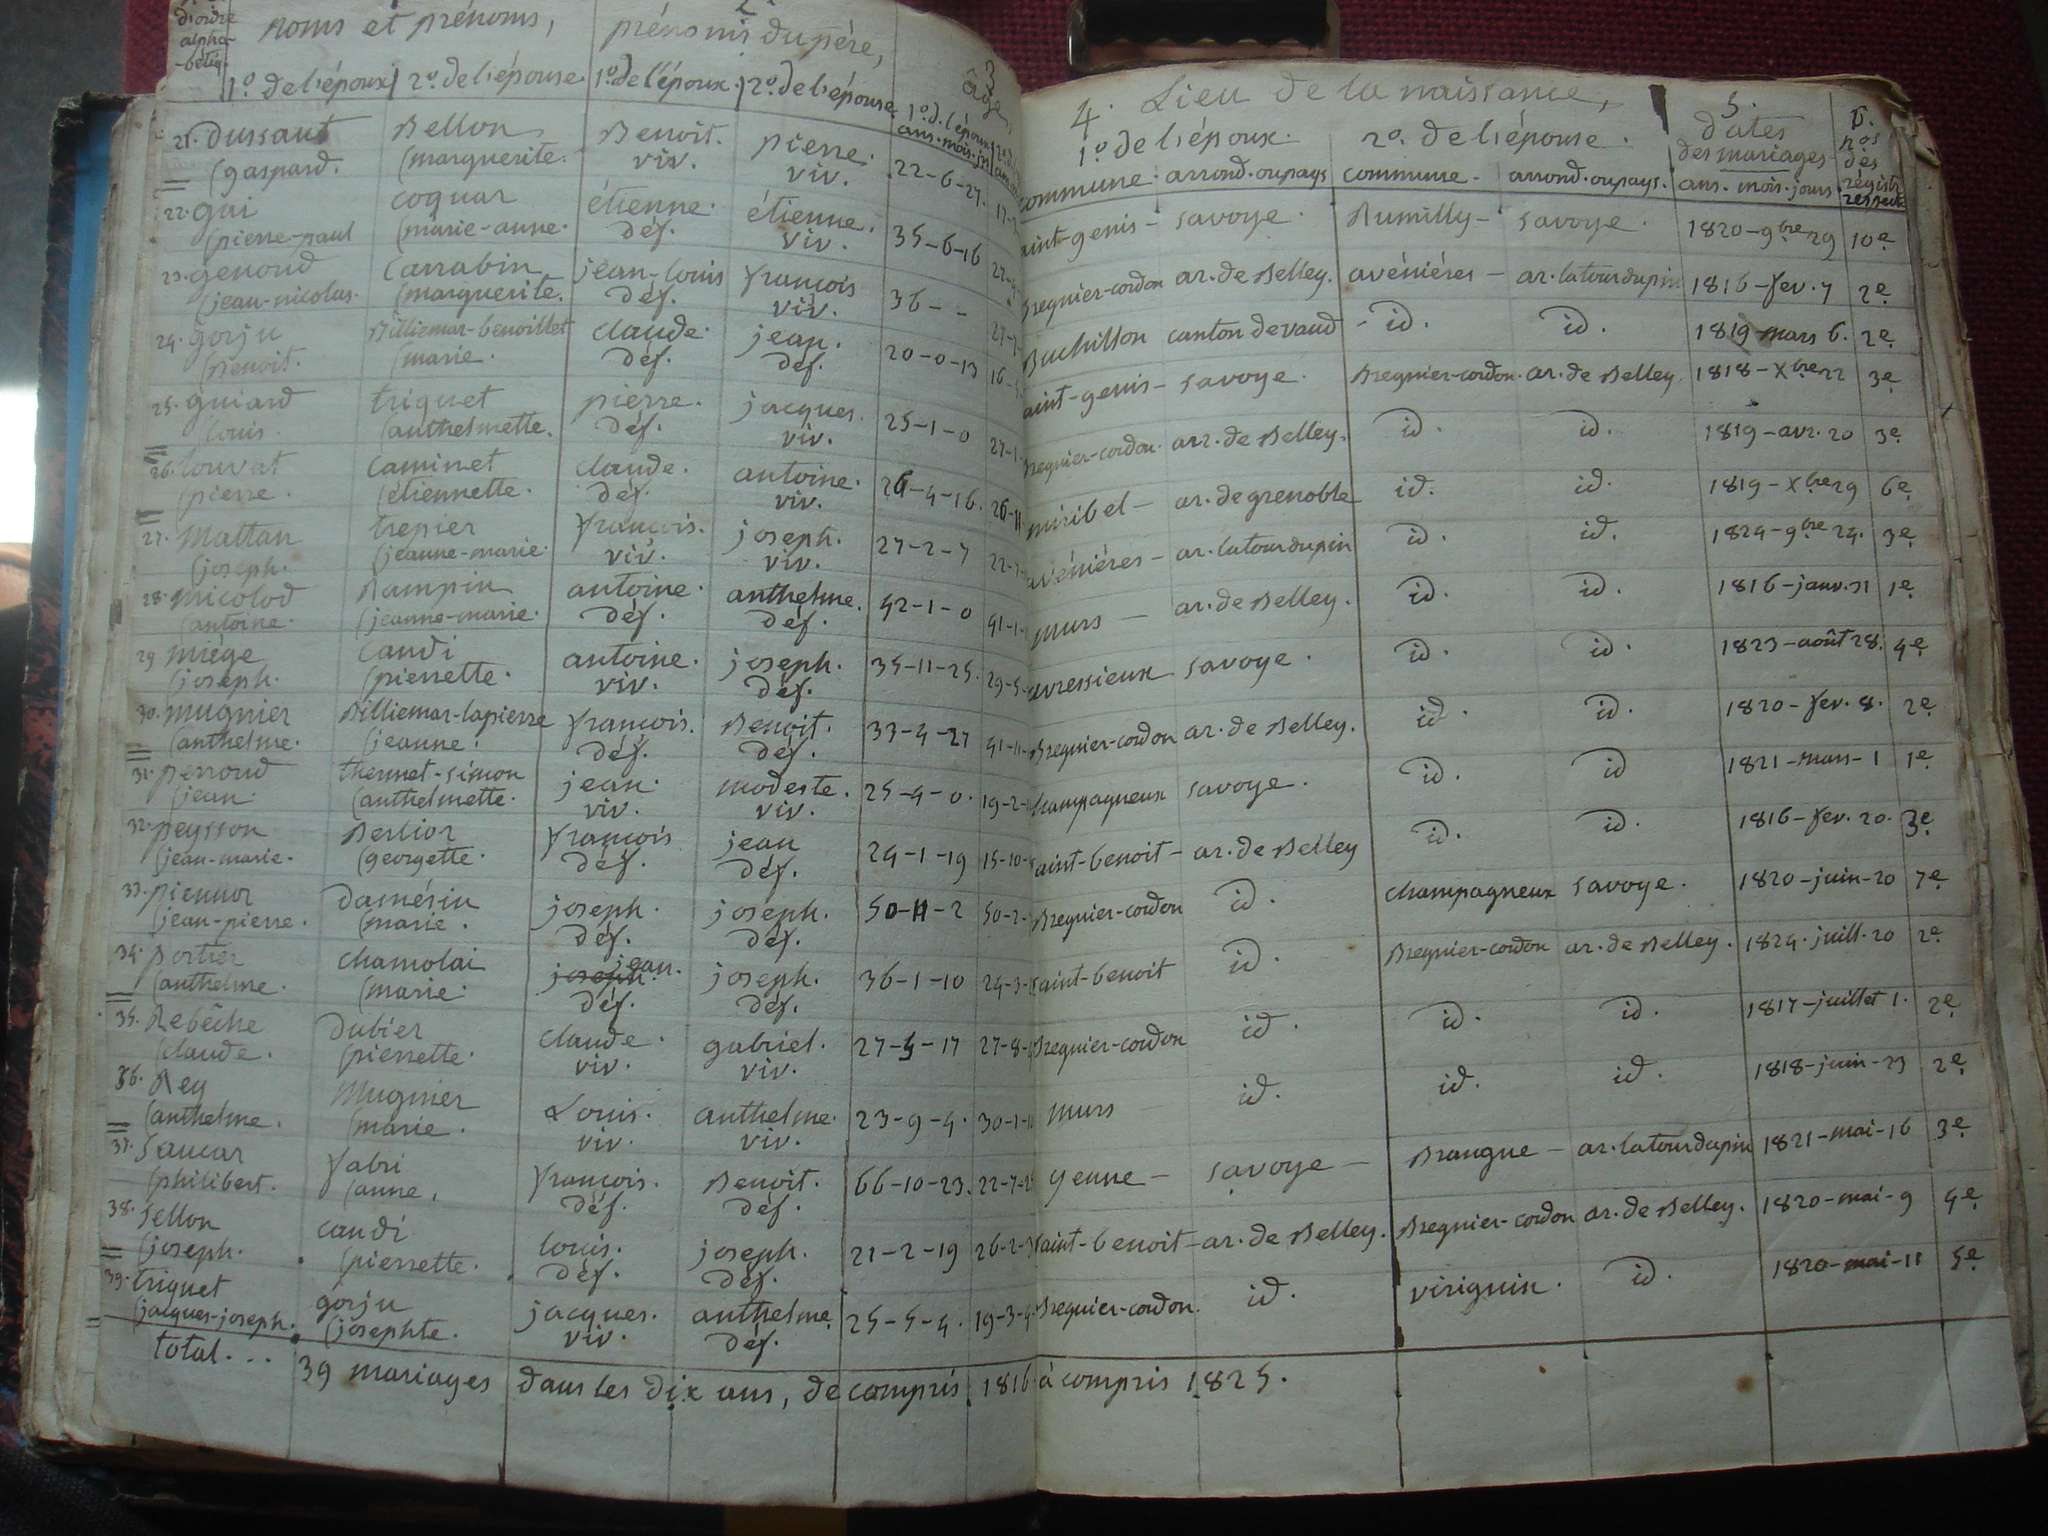 d'ordre
alpha-
-bétiq.
noms et prénoms,
1º de l'époux 2º de l'épouse
2.
prénoms du père,
1º de l'époux. 2º de l'épouse
3
âge,
1º d. l'époux
ans. mois. j
21. Dussaut Bellon Benoit. pierre. 22-6-27.
(gaspard. (marguerite. viv. viv.
22. gui coquar étienne. étienne. 35-6-16
(pierre-paul (marie-anne. déf. viv.
23. genoud Carrabin jean-louis françois 36 - -
(jean-nicolas. (marguerite. déf. viv.
24. gorju Billiemar-benoillet claude. jean. 20-0-13
(Benoit. (marie. déf. déf.
25. guiard triquet pierre. jacques. 25-1-0
louis. (anthelmette. déf. viv.
26. louvat Caminet claude. antoine. 26-4-16.
(pierre. (étiennette. déf. viv.
27. Mattan trepier françois. joseph. 27-2-7
(joseph. (jeanne-marie. viv. viv.
28. micolod Rampin antoine. anthelme. 42-1-0
(antoine. (jeanne-marie. déf. déf.
29 miège Caudi antoine. joseph. 35-11-25.
(joseph. (pierrette. viv. déf.
30. mugnier Billiemar-lapierre françois. Benoit. 33-4-27
(anthelme. (jeanne. déf. déf.
31. perroud thermet-simon jean. modeste. 25-4-0.
(jean. (anthelmette. viv. viv.
32. peysson Berlior françois jean 24-1-19 15-10-
(jean-marie. (georgette. déf. déf.
33. piennor Damésin joseph. joseph. 50-11-2 50-2-
(jean-pierre. (marie. déf. déf.
34. portier chamolai joseph jean. joseph. 36-1-10 24-3-
(anthelme. (marie. déf. déf.
35. Rebêche Dubier claude. gabriel. 27-5-17 27-8-
(claude. (pierrette. viv. viv.
36. Rey Mugnier Louis. anthelme. 23-9-4. 30-1-
(anthelme. (marie. viv. viv.
37. Saucar fabri françois. Benoit. 66-10-23. 22-7-
(philibert. (anne. déf. déf.
38. Sellon caudi louis. joseph. 21-2-19 26-2-
(joseph. (pierrette. déf. déf.
39. triquet gorju jacques. anthelme. 25-5-4. 19-3-
(jacques-joseph. (josephte. viv. déf.
total... 39 mariages dans les dix ans, de compris 1816 à compris 1825.
4. Lieu de la naissance,
1º de l'époux. 2º. de l'épouse.
commune. arrond. ou pays commune - arrond. ou pays.
5.
dates
des mariages
ans. mois. jours
6.
nos
des
régist.
aint-genis - savoye. Rumilly - savoye. 1820-9bre 29 10e
Bregnier-cordon ar. de Belley. avénières - ar. latourdupin 1816-fev. 7 2e
Buchillon canton de vaud - id. id. 1819 mars 6. 2e.
aint-genis - savoye. Bregnier-cordon. ar. de Belley. 1818-Xbre 22 3e
Bregnier-cordon. arr. de Belley. id. id. 1819-avr. 20 3e
miribel - ar. de grenoble id. id. 1819-Xbre 29 6e
avénières - ar. latourdupin id. id. 1824-9bre 24. 3e
murs - ar. de Belley. id. id. 1816-janv. 31 1e
avressieux savoye. id. id. 1823-août 28. 4e
Bregnier-cordon ar. de Belley. id. id. 1820-fev. 8. 2e
champagneux savoye. id. id 1821-mars-1 1e
aint-benoit - ar. de Belley id. id. 1816-fev. 20. 3e
Bregnier-cordon id. champagneux savoye. 1820-juin-20 7e
saint-benoit id. Bregnier-cordon ar. de Belley. 1824. juill. 20 2e
Bregnier-cordon id. id. id. 1817-juillet 1. 2e
murs - id. id. id. 1818-juin-23 2e
yenne - savoye - Brangue - ar. latourdupin 1821-mai-16 3e
saint-benoit - ar. de Belley. Bregnier-cordon ar. de Belley. 1820-mai-9 4e
Bregnier-cordon. id. virignin. id. 1820-mai-11 5e